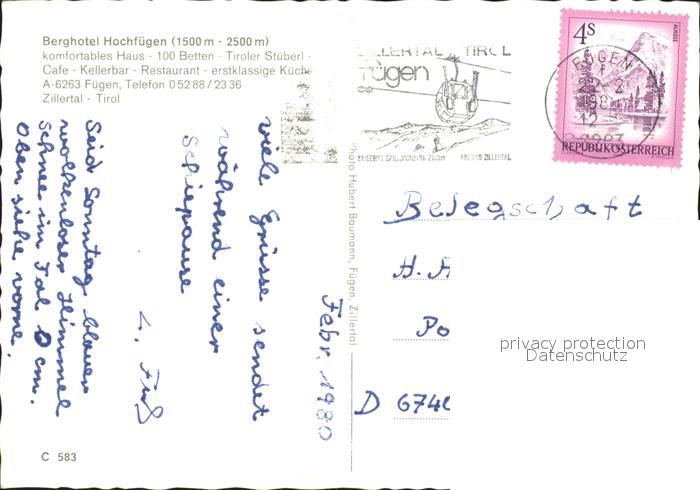 Berghotel Hochfügen (1500 m - 2500 m)
komfortables Haus - 100 Betten - Tiroler Stüberl -
Cafe - Kellerbar - Restaurant - erstklassige Küche
A-6263 Fügen, Telefon 0 52 88 / 23 36
Zillertal - Tirol
ZILLERTAL TIROL
Fügen
4S
FÜGEN
REPUBLIK ÖSTERREICH
Photo Hubert Baumann, Fügen, Zillertal
Febr. 1980
viele Grüsse sendet
während einer
Schiepause
Seid Sonntag blauer
wolkenloser Himmel
Schnee im Tal 0 cm.
Oben siehe vorne.
Belegschaft
H. A
Po
D 6740
privacy protection
Datenschutz
C 583